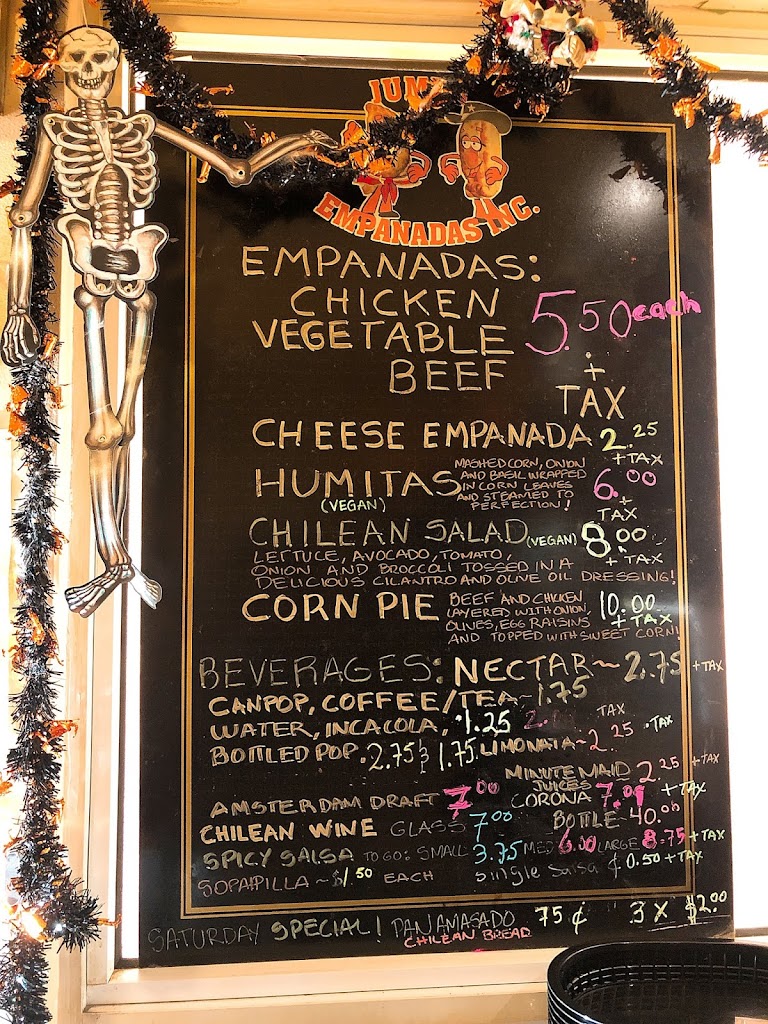 JUM
EMPANADAS INC.
EMPANADAS:
CHICKEN
VEGETABLE 5.50 each
BEEF +
TAX
CHEESE EMPANADA 2.25
+ TAX
HUMITAS MASHED CORN, ONION
AND BASIL WRAPPED
IN CORN LEAVES
AND STEAMED TO
PERFECTION! 6.00
(VEGAN) +
TAX
CHILEAN SALAD (VEGAN) 8.00
+ TAX
LETTUCE, AVOCADO, TOMATO,
ONION AND BROCCOLI TOSSED IN A
DELICIOUS CILANTRO AND OLIVE OIL DRESSING!
CORN PIE BEEF AND CHICKEN
LAYERED WITH ONION,
OLIVES, EGG RAISINS
AND TOPPED WITH SWEET CORN! 10.00
+ TAX
BEVERAGES: NECTAR~ 2.75 + TAX
CANPOP, COFFEE/TEA~1.75
WATER, INCA COLA, 1.25 TAX
BOTTLED POP. 2.75 1.75 LIMONATA~2.25 + TAX
MINUTE MAID 2.25 + TAX
JUICES
AMSTERDAM DRAFT 7.00 CORONA 7.00 + TAX
CHILEAN WINE GLASS 7.00 BOTTLE~40.00
SPICY SALSA TO GO: SMALL 3.75 MED 6.00 LARGE 8.75 + TAX
SOPAIPILLA ~ $1.50 EACH single salsa ¢ 0.50 + TAX
SATURDAY SPECIAL! PAN AMASADO 75¢ 3 X $2.00
CHILEAN BREAD